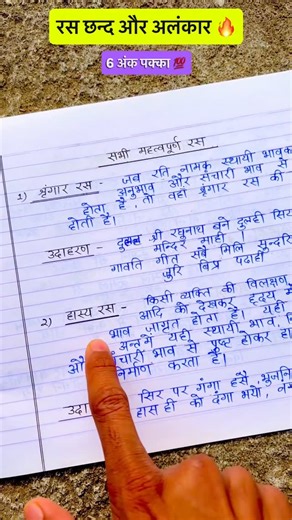 रस छन्द और अलंकार 🔥
6 अंक पक्का 💯
सभी महत्वपूर्ण रस
1) श्रृंगार रस - जब रति नामक स्थायी भाव
अनुभाव और संचारी भाव से
होता है, तो वहाँ श्रृंगार रस की
होती है।
उदाहरण - श्री रघुनाथ बने दुलही सिय
मन्दिर माही ।
गावति गीत सबै मिलि सुन्दरि
जुरि बिप्र पढ़ाही
2) हास्य रस - किसी व्यक्ति की विलक्षण
आदि को देखकर हृदय में
भाव जाग्रत होता है। यही
अन्त में यही स्थायी भाव,
संचारी भाव से पुष्ट होकर
निर्माण करता है।
सिर पर गंगा हसै, भुजनि
हास ही को दंगा भयो,